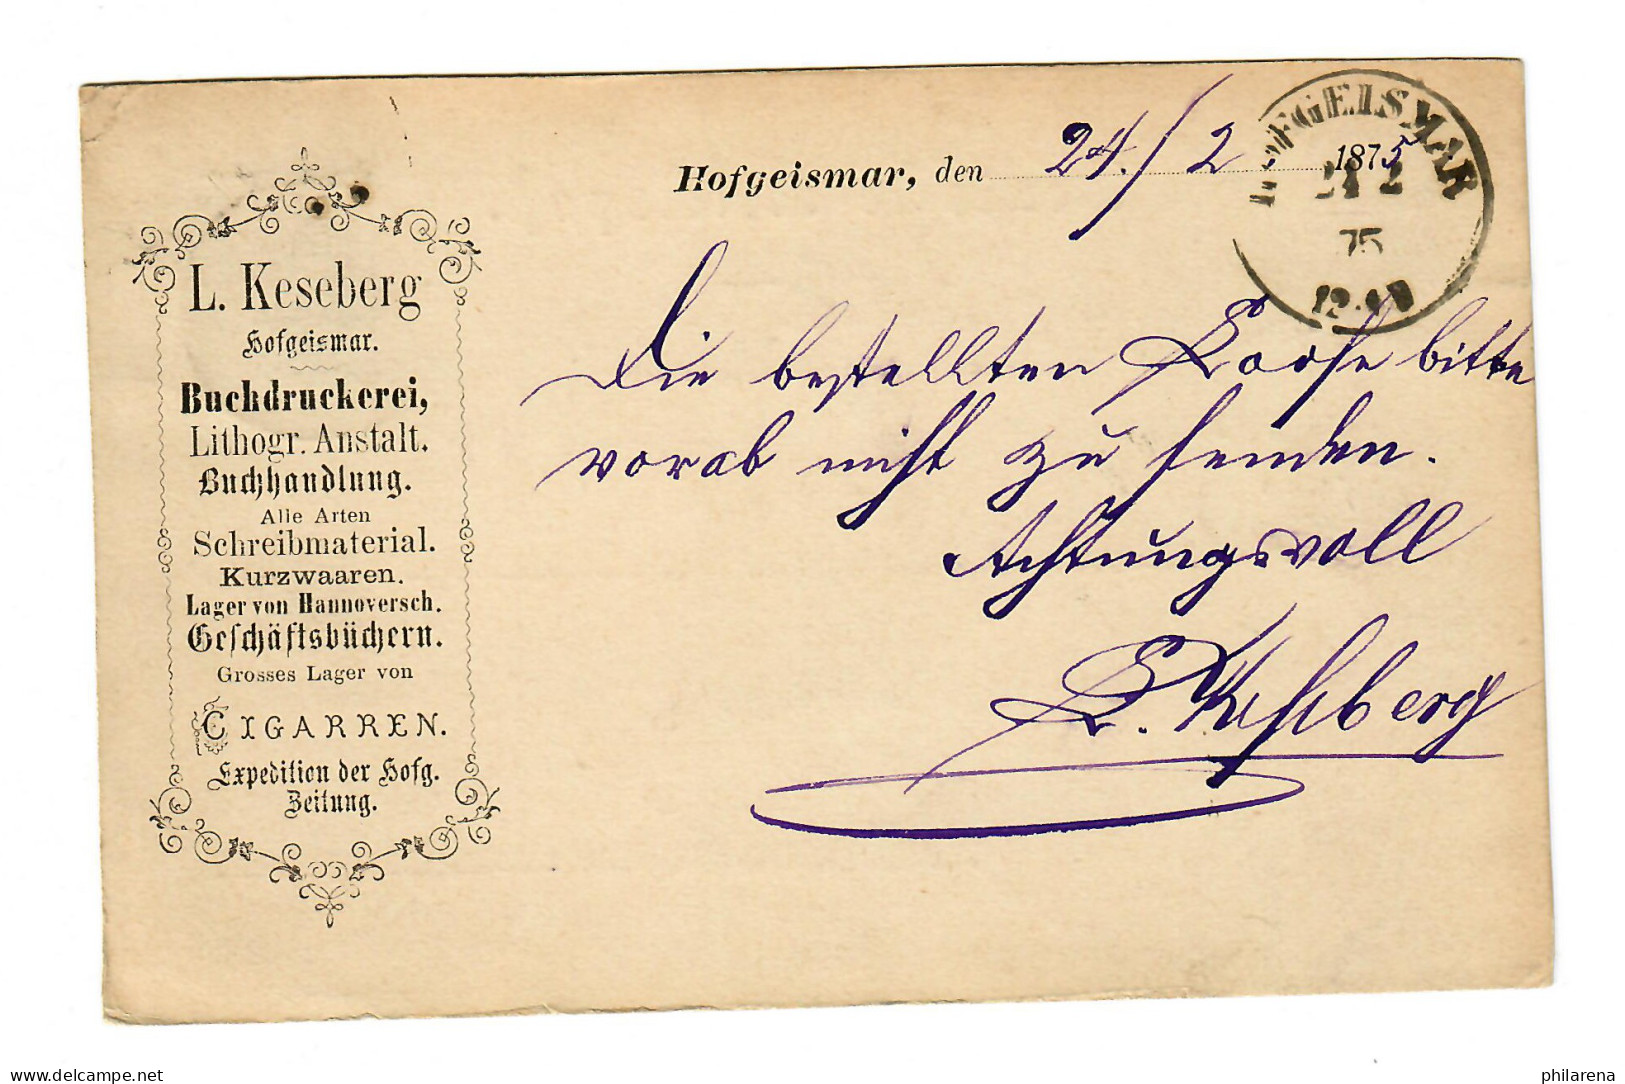 Hofgeismar, den 24./2 1875
HOFGEISMAR
24 2
75
L. Keseberg
Hofgeismar.
Buchdruckerei,
Lithogr. Anstalt.
Buchhandlung.
Alle Arten
Schreibmaterial.
Kurzwaaren.
Lager von Hannoversch.
Geschäftsbüchern.
Grosses Lager von
CIGARREN.
Expedition der Hofg.
Zeitung.
Die bestellten Loose bitte
vorab nicht zu senden.
Achtungsvoll
L. Keseberg
delcampe.net
philarena